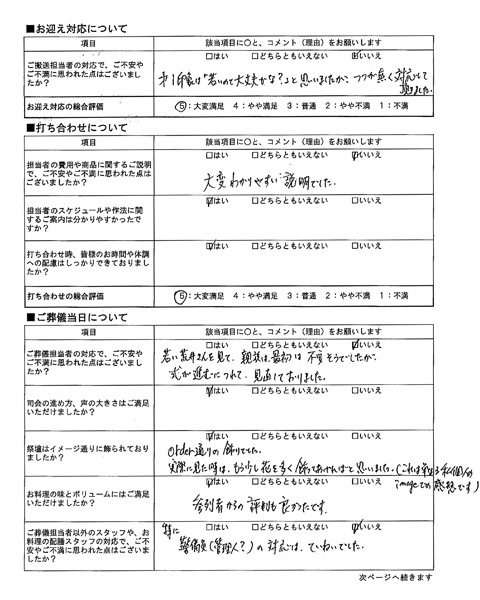 ■お迎え対応について
項目 該当項目に○と、コメント（理由）をお願いします
ご搬送担当者の対応で、ご不安や
ご不満に思われた点はございまし
たか？
□はい □どちらともいえない ☑いいえ
オ1印象は「若いので大丈夫かな？」と思いましたが、ソツが無く対応して
頂きました。
お迎え対応の総合評価 ⑤：大変満足 4：やや満足 3：普通 2：やや不満 1：不満
■打ち合わせについて
項目 該当項目に○と、コメント（理由）をお願いします
担当者の費用や商品に関するご説明
で、ご不安やご不満に思われた点は
ございましたか？
□はい □どちらともいえない ☑いいえ
大変わかりやすい説明でした。
担当者のスケジュールや作法に関
するご案内は分かりやすかったで
すか？
☑はい □どちらともいえない □いいえ
打ち合わせ時、皆様のお時間や体調
への配慮はしっかりできておりまし
たか？
☑はい □どちらともいえない □いいえ
打ち合わせの総合評価 ⑤：大変満足 4：やや満足 3：普通 2：やや不満 1：不満
■ご葬儀当日について
項目 該当項目に○と、コメント（理由）をお願いします
ご葬儀担当者の対応で、ご不安や
ご不満に思われた点はございまし
たか？
□はい □どちらともいえない ☑いいえ
若い荒井さんを見て、親族は最初は不安そうでしたが、
式が進むにつれて、見直しておりました。
司会の進め方、声の大きさはご満足
いただけましたか？
☑はい □どちらともいえない □いいえ
祭壇はイメージ通りに飾られており
ましたか？
☑はい □どちらともいえない □いいえ
order通りの飾りでした。
実際に見た時は、もう少し花を多く飾ってあければと思いました。(これは単なる私個人の
imageでの感想です)
お料理の味とボリュームにはご満足
いただけましたか？
☑はい □どちらともいえない □いいえ
参列者からの評判も良かったです。
ご葬儀担当者以外のスタッフや、お
料理の配膳スタッフの対応で、ご不
安やご不満に思われた点はございま
したか？
□はい □どちらともいえない ☑いいえ
特に
警備員(管理人？)の対応は、ていねいでした。
次ページへ続きます